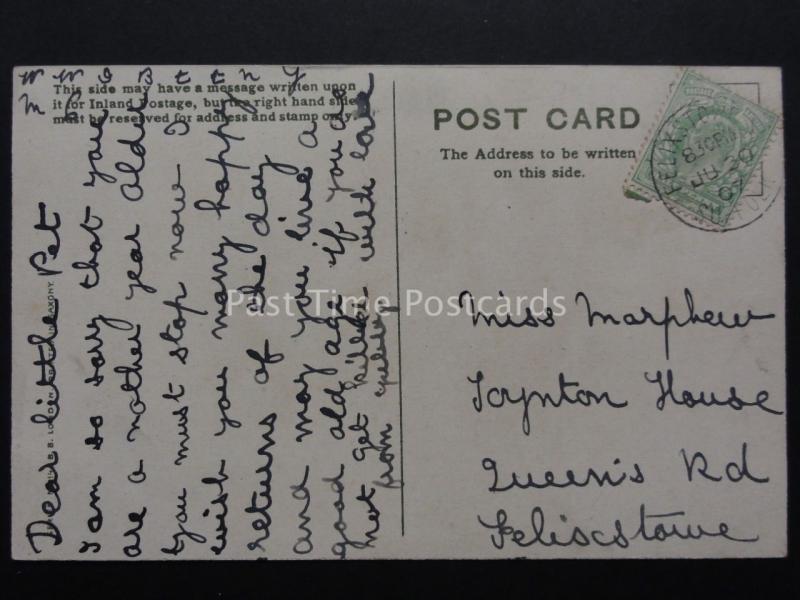 W W O B t t n y
This side may have a message written upon
it for Inland Postage, but the right hand side
must be reserved for address and stamp only.
Dear little Pet
I am so sorry that you
are a nother year alder
you must stop now I
wish you many happy
returns of the day
and may you live a
good ald age if you do
not get killed with love
from
POST CARD
The Address to be written
on this side.
FELIXSTOWE
8 30 PM
JU 30
07
SUFFOLK
Miss Morphew
Toynton House
Queen's Rd
Feliscstowe
Past Time Postcards